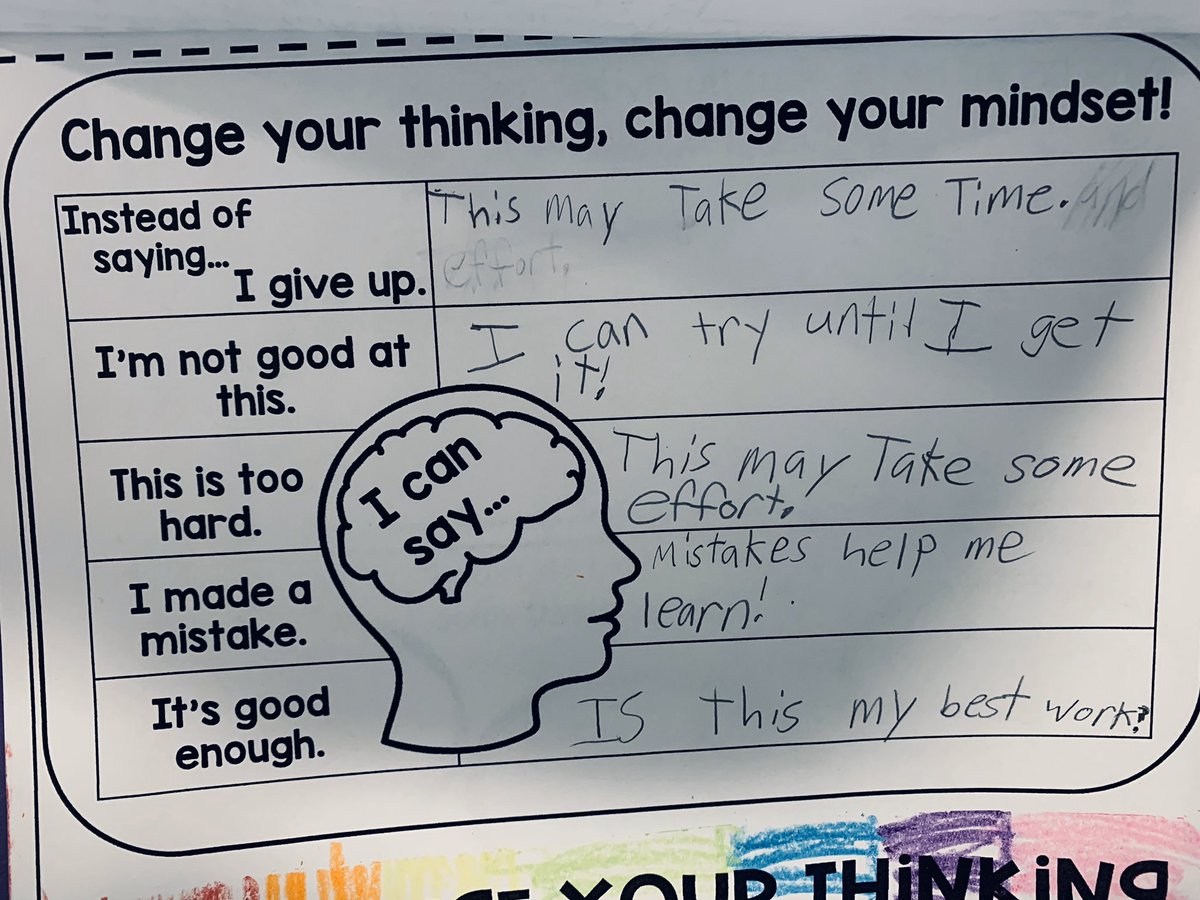 Change your thinking, change your mindset!
Instead of
saying...
I give up.
This may Take Some Time. and
effort.
I'm not good at
this.
I can try until I get
it!
This is too
hard.
I can
say...
This may Take some
effort.
I made a
mistake.
Mistakes help me
learn!
It's good
enough.
IS This my best work?
YOUR THiNKiNG